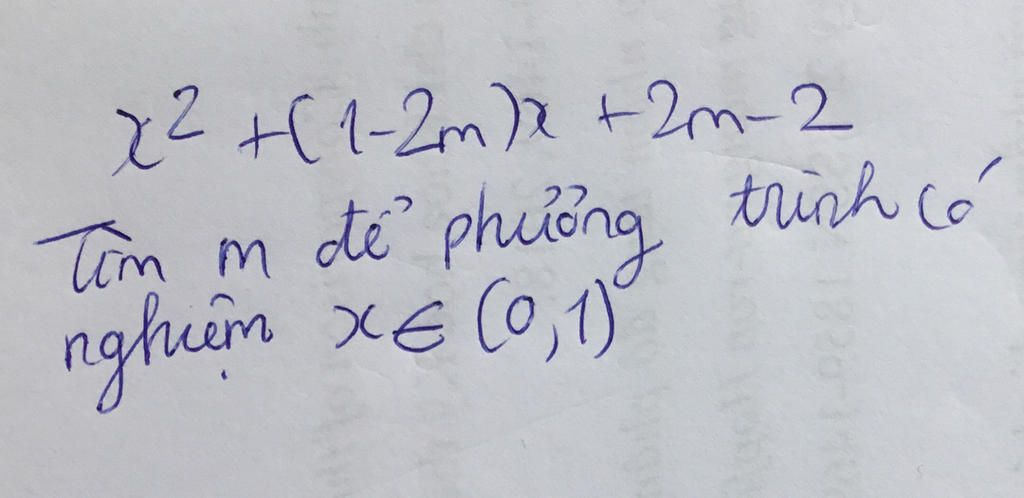 x² + (1-2m)x + 2m-2
Tìm m để phưởng trình có
nghiệm x ∈ (0,1)